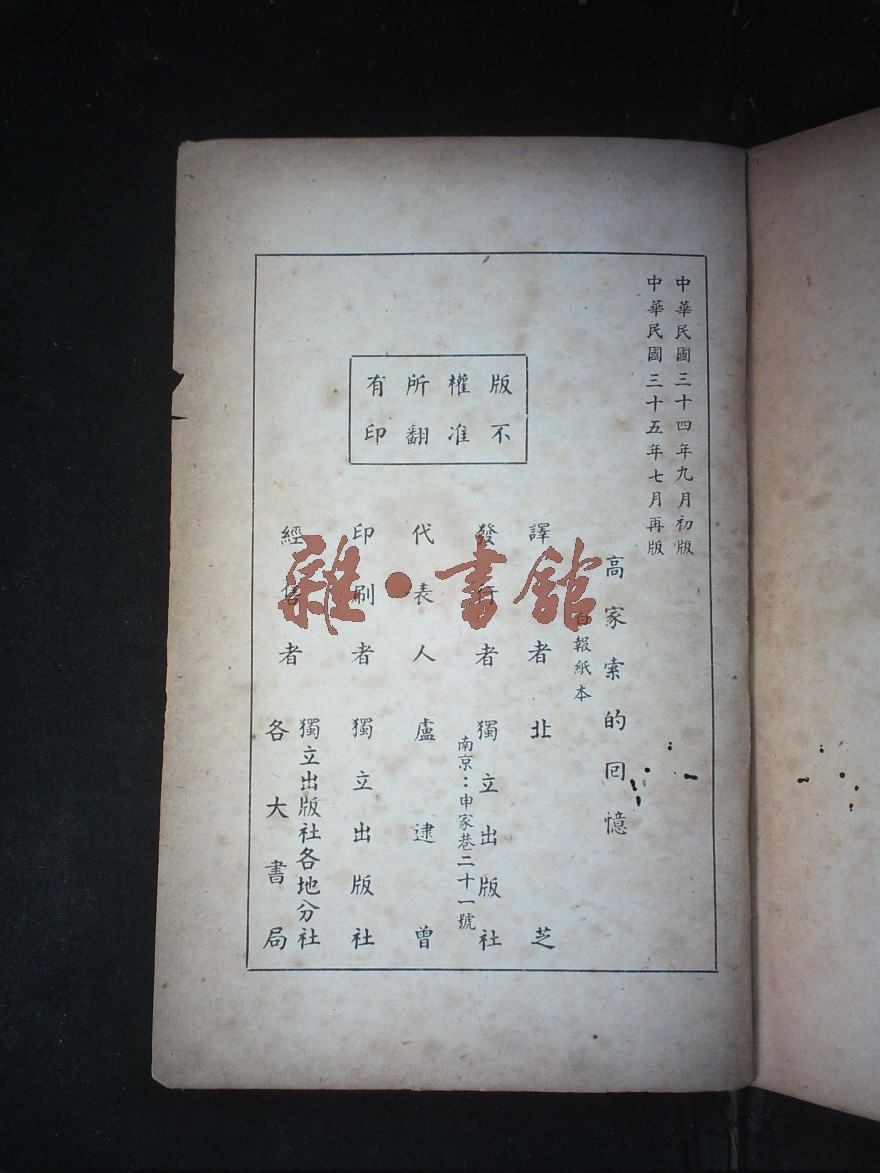 中華民國三十四年九月初版
中華民國三十五年七月再版
高家索的回憶
白報紙本
譯者 北芝
發行者 獨立出版社
南京：申家巷二十一號
代表人 盧逮曾
印刷者 獨立出版社
經售者 獨立出版社各地分社
各大書局
版權所有
不准翻印
雜·書館